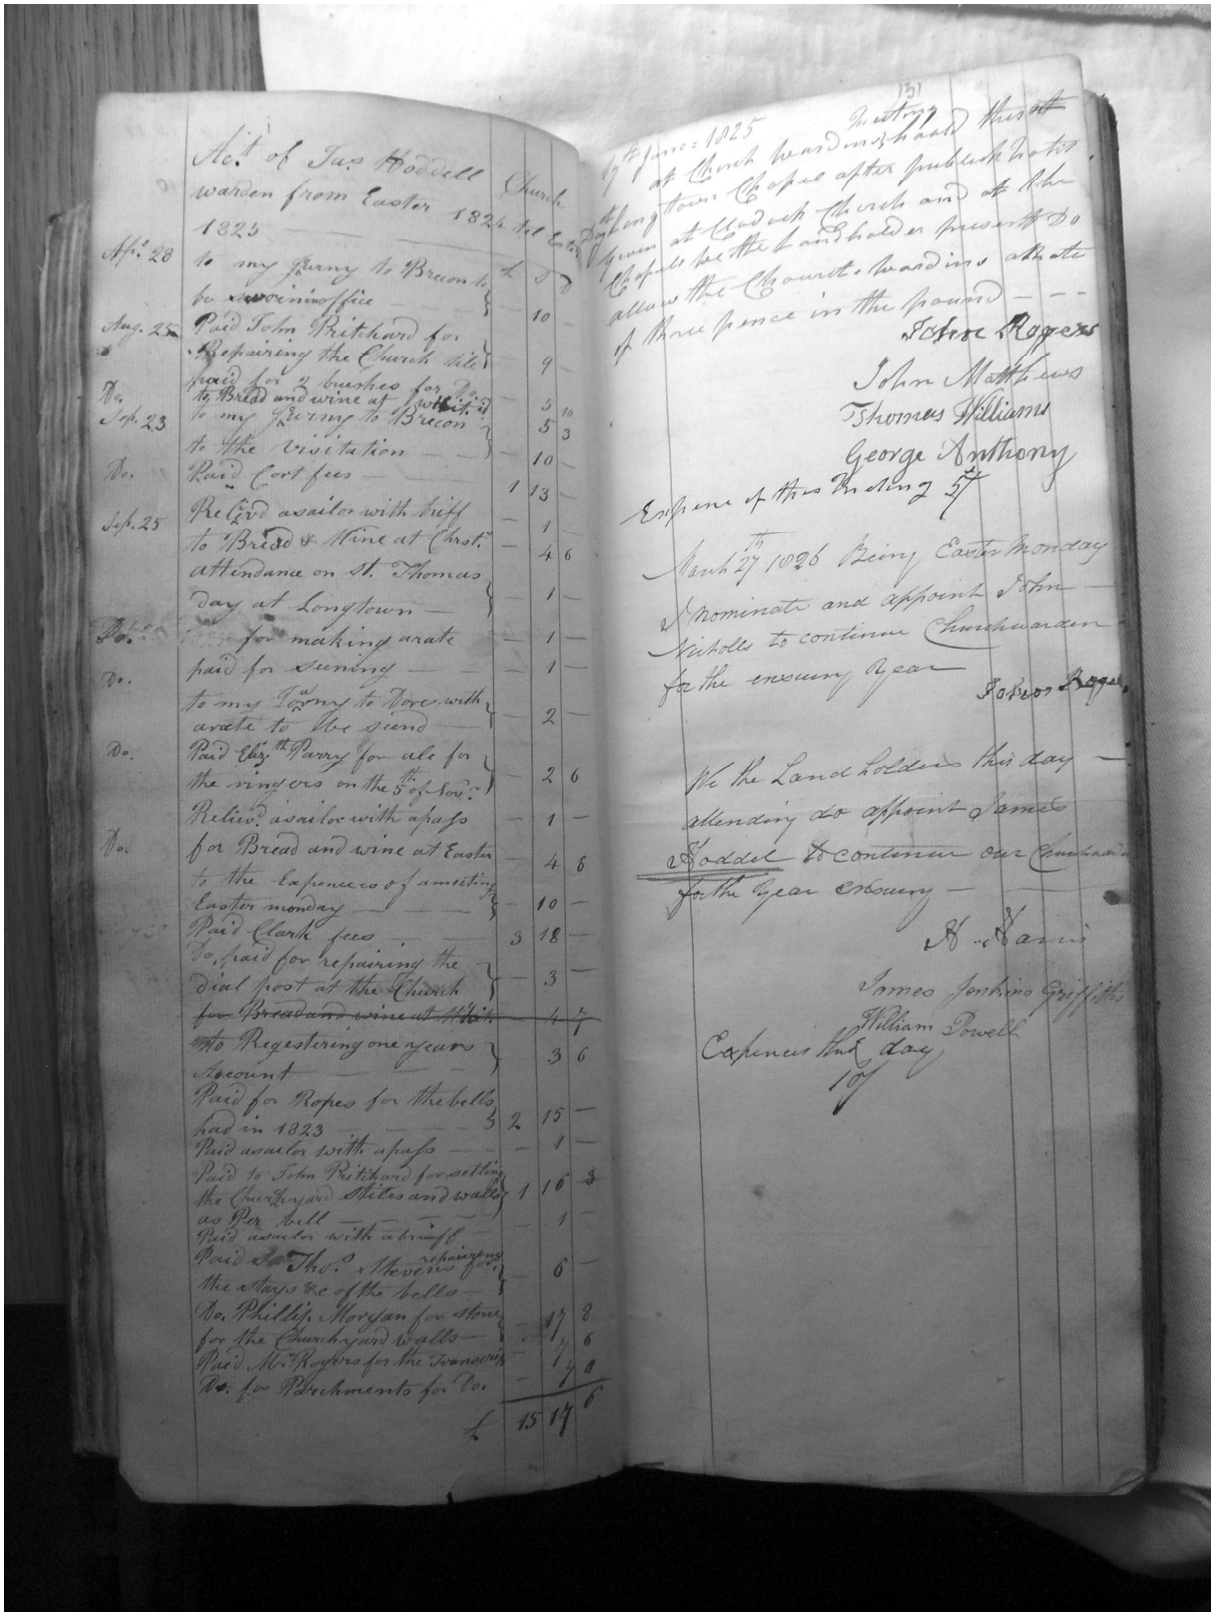 Act. of Jas. Hoddell Church
warden from Easter 1824 til Easter
1825
£ S D
Apl. 28 to my Jurny to Brecon to
be sworn in office — 10 —
Aug. 25 Paid John Pritchard for
Repairing the Church tile — 9 —
paid for 2 bushes for Do. — 5 10
Do. to Bread and wine at Whit.d 5 3
Sep. 23 to my Jurny to Brecon
to the Visitation — — 10 —
Do. Paid Cort fees — 1 13 —
Sep. 25 Relivd asailor with briff — 1 —
to Bread & Wine at Chrst. — 4 6
attendance on St. Thomas
day at Longtown — — 1 —
Do. for making arate — 1 —
Do. paid for sining — — 1 —
to my Jorny to Dore with
arate to be sind — — 2 —
Do. Paid Eliz.th Parry for ale for
the ringers on the 5th of Novr. — 2 6
Reliev.d asailor with apass — 1 —
Do. for Bread and wine at Easter — 4 6
to the Expences of ameeting
Easter monday — — — — 10 —
Paid Clark fees — — 3 18 —
Do. paid for repairing the
dial post at the Church — 3 —
for Bread and wine at Whit. 4 7
to Regestering one years
Account — — — 3 6
Paid for Ropes for the bells
had in 1823 — — — 2 15 —
Paid asailor with apass — — — 1 —
Paid to John Pritchard for setting
the Churchyard Stiles and walls
as Per bill — — — 1 16 3
Paid asailor with abriff — 1 —
Paid Thos. Stevens for repairing
the stays &c of the bells — — 6 —
Do. Phillip Morgan for stone
for the Churchyard walls — — 17 8
Paid Mr. Rogers for the Transcrip — 7 6
Do. for Parchments for Do.
£ 15 17 6
131
17th June = 1825 Meeting
at Church wardins hoald this
at Longtown Chapel after publick notis
Given at Clodock Church and at the
Chapels we the Landholder present Do
allow the Chourch-wardins arate
of three pence in the pound — — —
John Rogers
John Matthews
Thomas Williams
George Anthony
Expence of this Meeting 5/
March 27th 1826 Being Easter Monday
I nominate and appoint John
Nicholls to continue Churchwarden
for the ensuing Year
John Rogers
We the Land holders this day —
attending do appoint James
Hoddel to continue our Churchwarden
for the Year ensuing — —
James Jenkins Griffiths
William Powell
Expences this day
10/